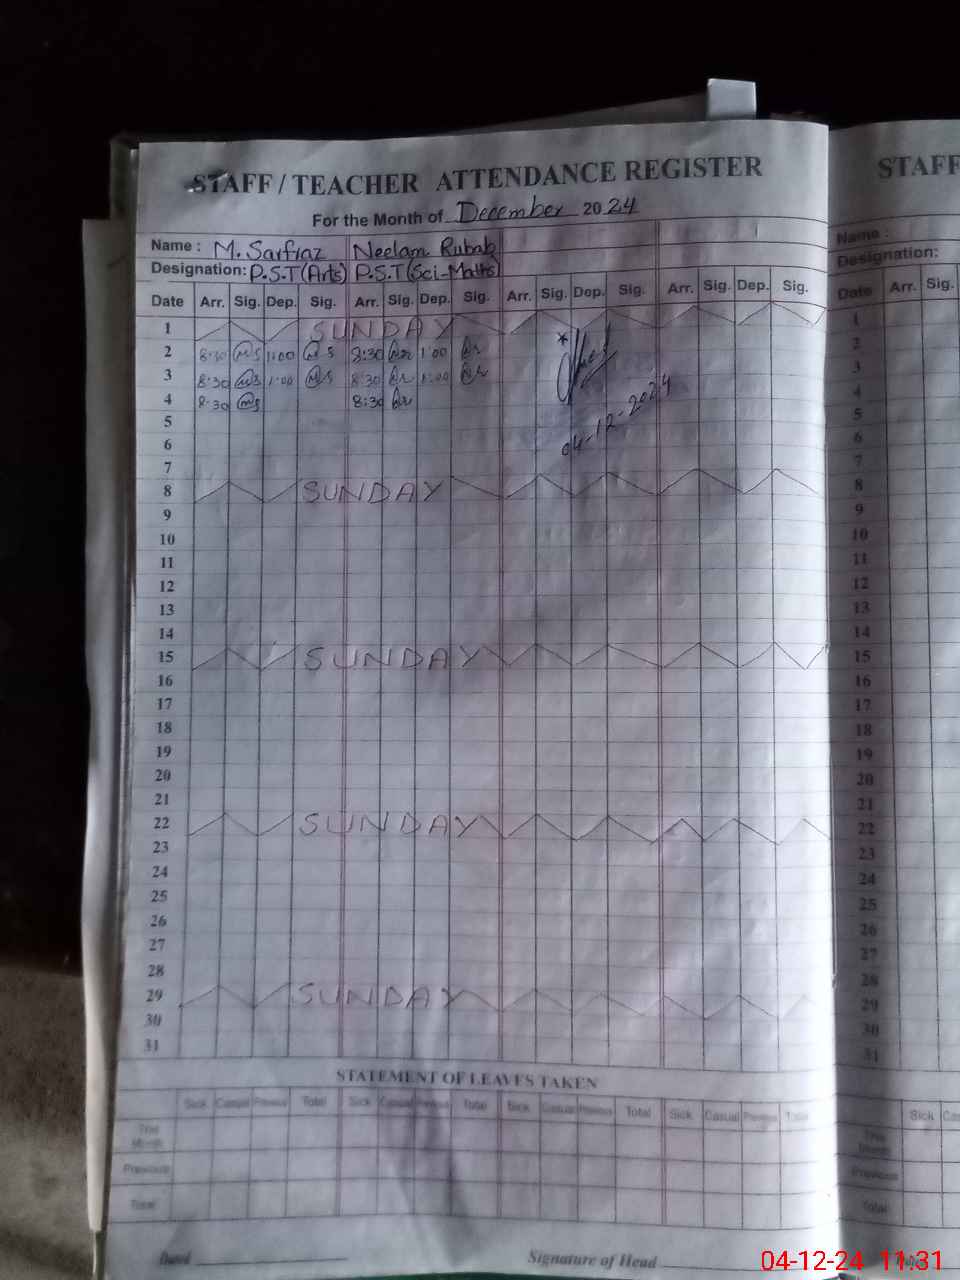 STAFF / TEACHER ATTENDANCE REGISTER
STAFF
For the Month of December 2024
Name : M. Sarfraz Neelam Rubab
Name :
Designation: P.S.T (Arts) P.S.T (Sci-Maths)
Designation:
Date Arr. Sig. Dep. Sig. Arr. Sig. Dep. Sig. Arr. Sig. Dep. Sig. Arr. Sig. Dep. Sig.
Date Arr. Sig.
1 SUNDAY
2 8:30 MS 1:00 MS 8:30 1:00
3 8:30 MS 1:00 MS 8:30 1:00
4 8:30 MS 8:30
04-12-2024
5
6
7
8 SUNDAY
9
10
11
12
13
14
15 SUNDAY
16
17
18
19
20
21
22 SUNDAY
23
24
25
26
27
28
29 SUNDAY
30
31
1
2
3
4
5
6
7
8
9
10
11
12
13
14
15
16
17
18
19
20
21
22
23
24
25
26
27
28
29
30
31
STATEMENT OF LEAVES TAKEN
Sick Casual Previous Total Sick Casual Previous Total Sick Casual Previous Total Sick Casual Previous Total
Sick
This Month
Previous
Total
This Month
Previous
Total
Dated
Signature of Head
04-12-24 11:31